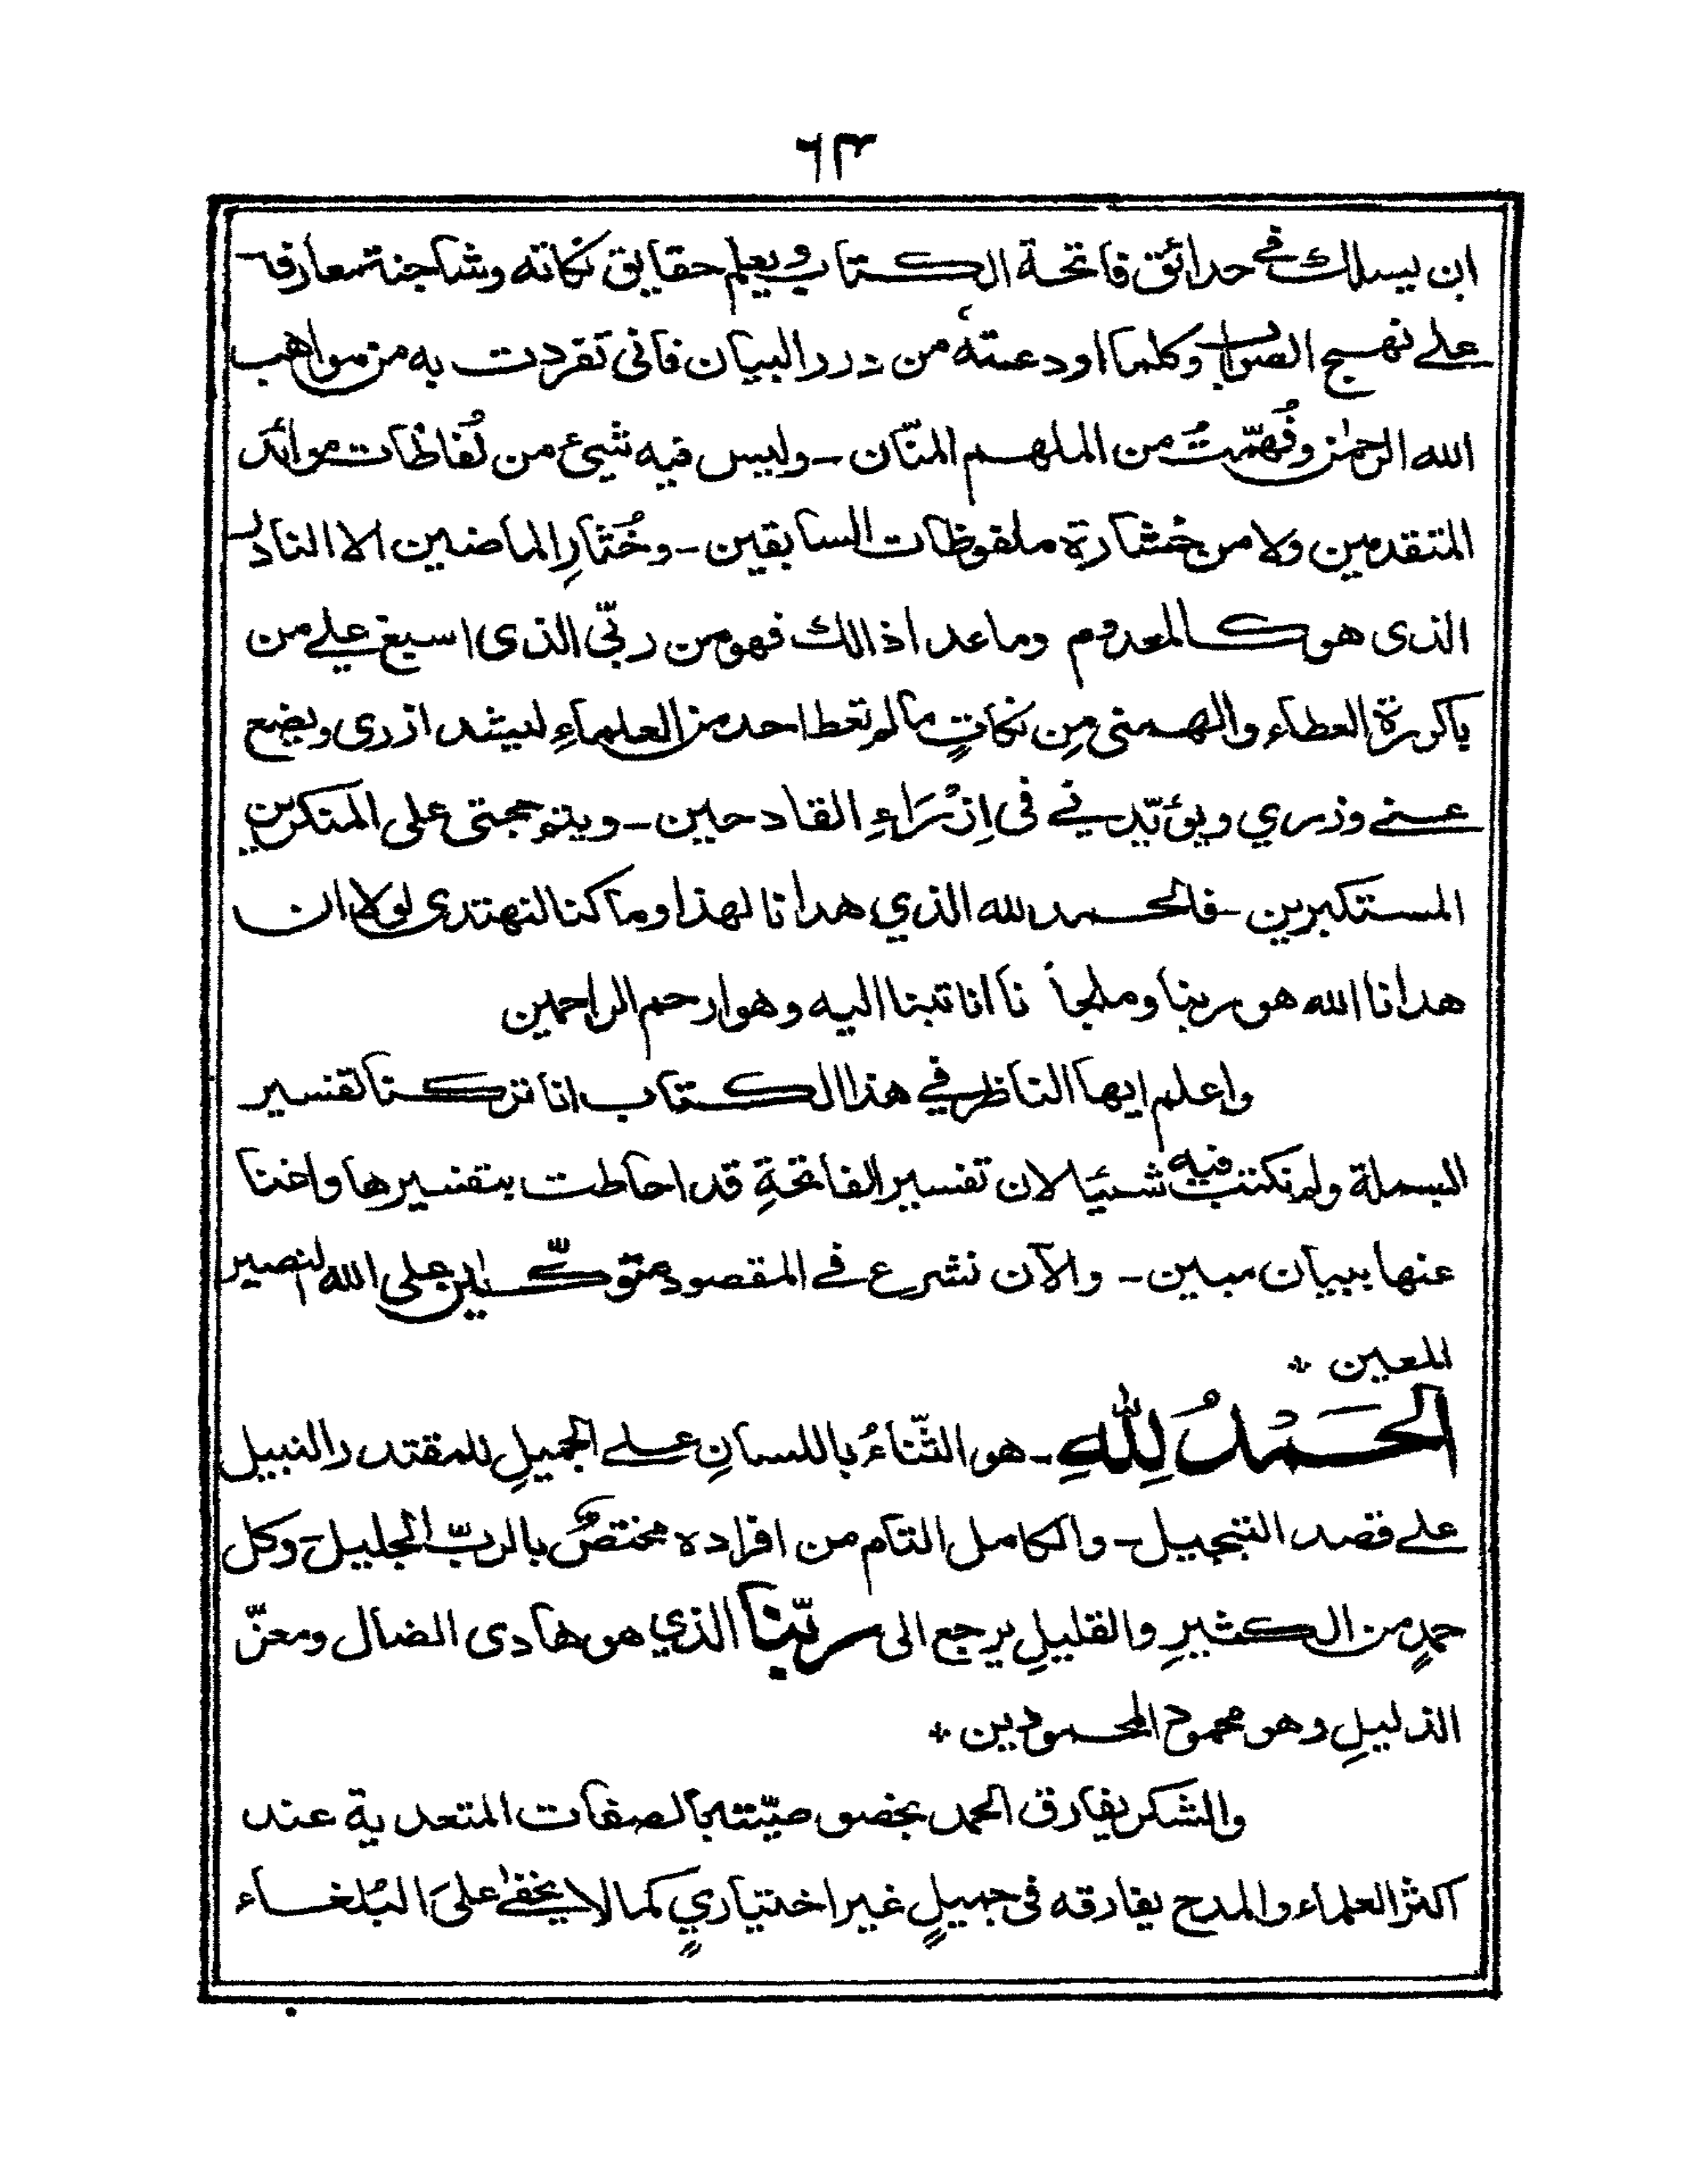 ٦٣
ان يسلك فى حدائق فاتحة الكتاب ويعلم حقايق نكاته وشاجنة معارفه
على نهج الصواب وكلما اودعته من درر البيان فانى تفردت به من مواهب
الله الرحمٰن وفُهّمتُ من الملهم المنّان ـ وليس فيه شىئ من لُفاظات موائد
المتقدمين ولا من خُشارة ملفوظات السابقين ـ وخُثارِ الماضين الا النادر
الذى هو كالمعدوم وما عدا ذالك فهو من ربّى الذى اسبغ على من
باكورة العطاء والهمنى مِن نكاتٍ ما لم تعط احد من العلماءِ ليشد ازرى ويضع
عنى وزرى ويؤيّدنى فى اِزْرَاءِ القادحين ـ ويتم حجتى على المنكرين
المستكبرين ـ فالحمد لله الذي هدانا لهذا وما كنا لنهتدى لولا ان
هدانا الله هو ربنا وملجأنا انا تبنا اليه وهو ارحم الراحمين
واعلم ايها الناظر في هذا الكتاب انا تركنا تفسير
البسملة ولم نكتب فيه شيئا لان تفسير الفاتحةِ قد احاطت بتفسيرها واغنا
عنها ببيان مبين ـ والآن نشرع في المقصود متوكّلين على الله النصير
المعين ٭
الحَمْدُ لِلّٰهِ ـ هو الثّناءُ باللسانِ على الجميلِ للمقتدر النبيل
على قصد التبجيل ـ والكامل التام من افراده مختصٌ بالربّ الجليل ـ وكل
حمدٍ من الكثيرِ والقليلِ يرجع الى ربّنا الذي هو هادى الضال ومعزّ
الذليلِ وهو محمود المحمودين ٭
والشكر يفارق الحمد بخصوصيّته بالصفات المتعدية عند
اكثر العلماء والمدح يفارقه فى جميلٍ غير اختياريٍ كما لا يخفىٰ على البُلغاء